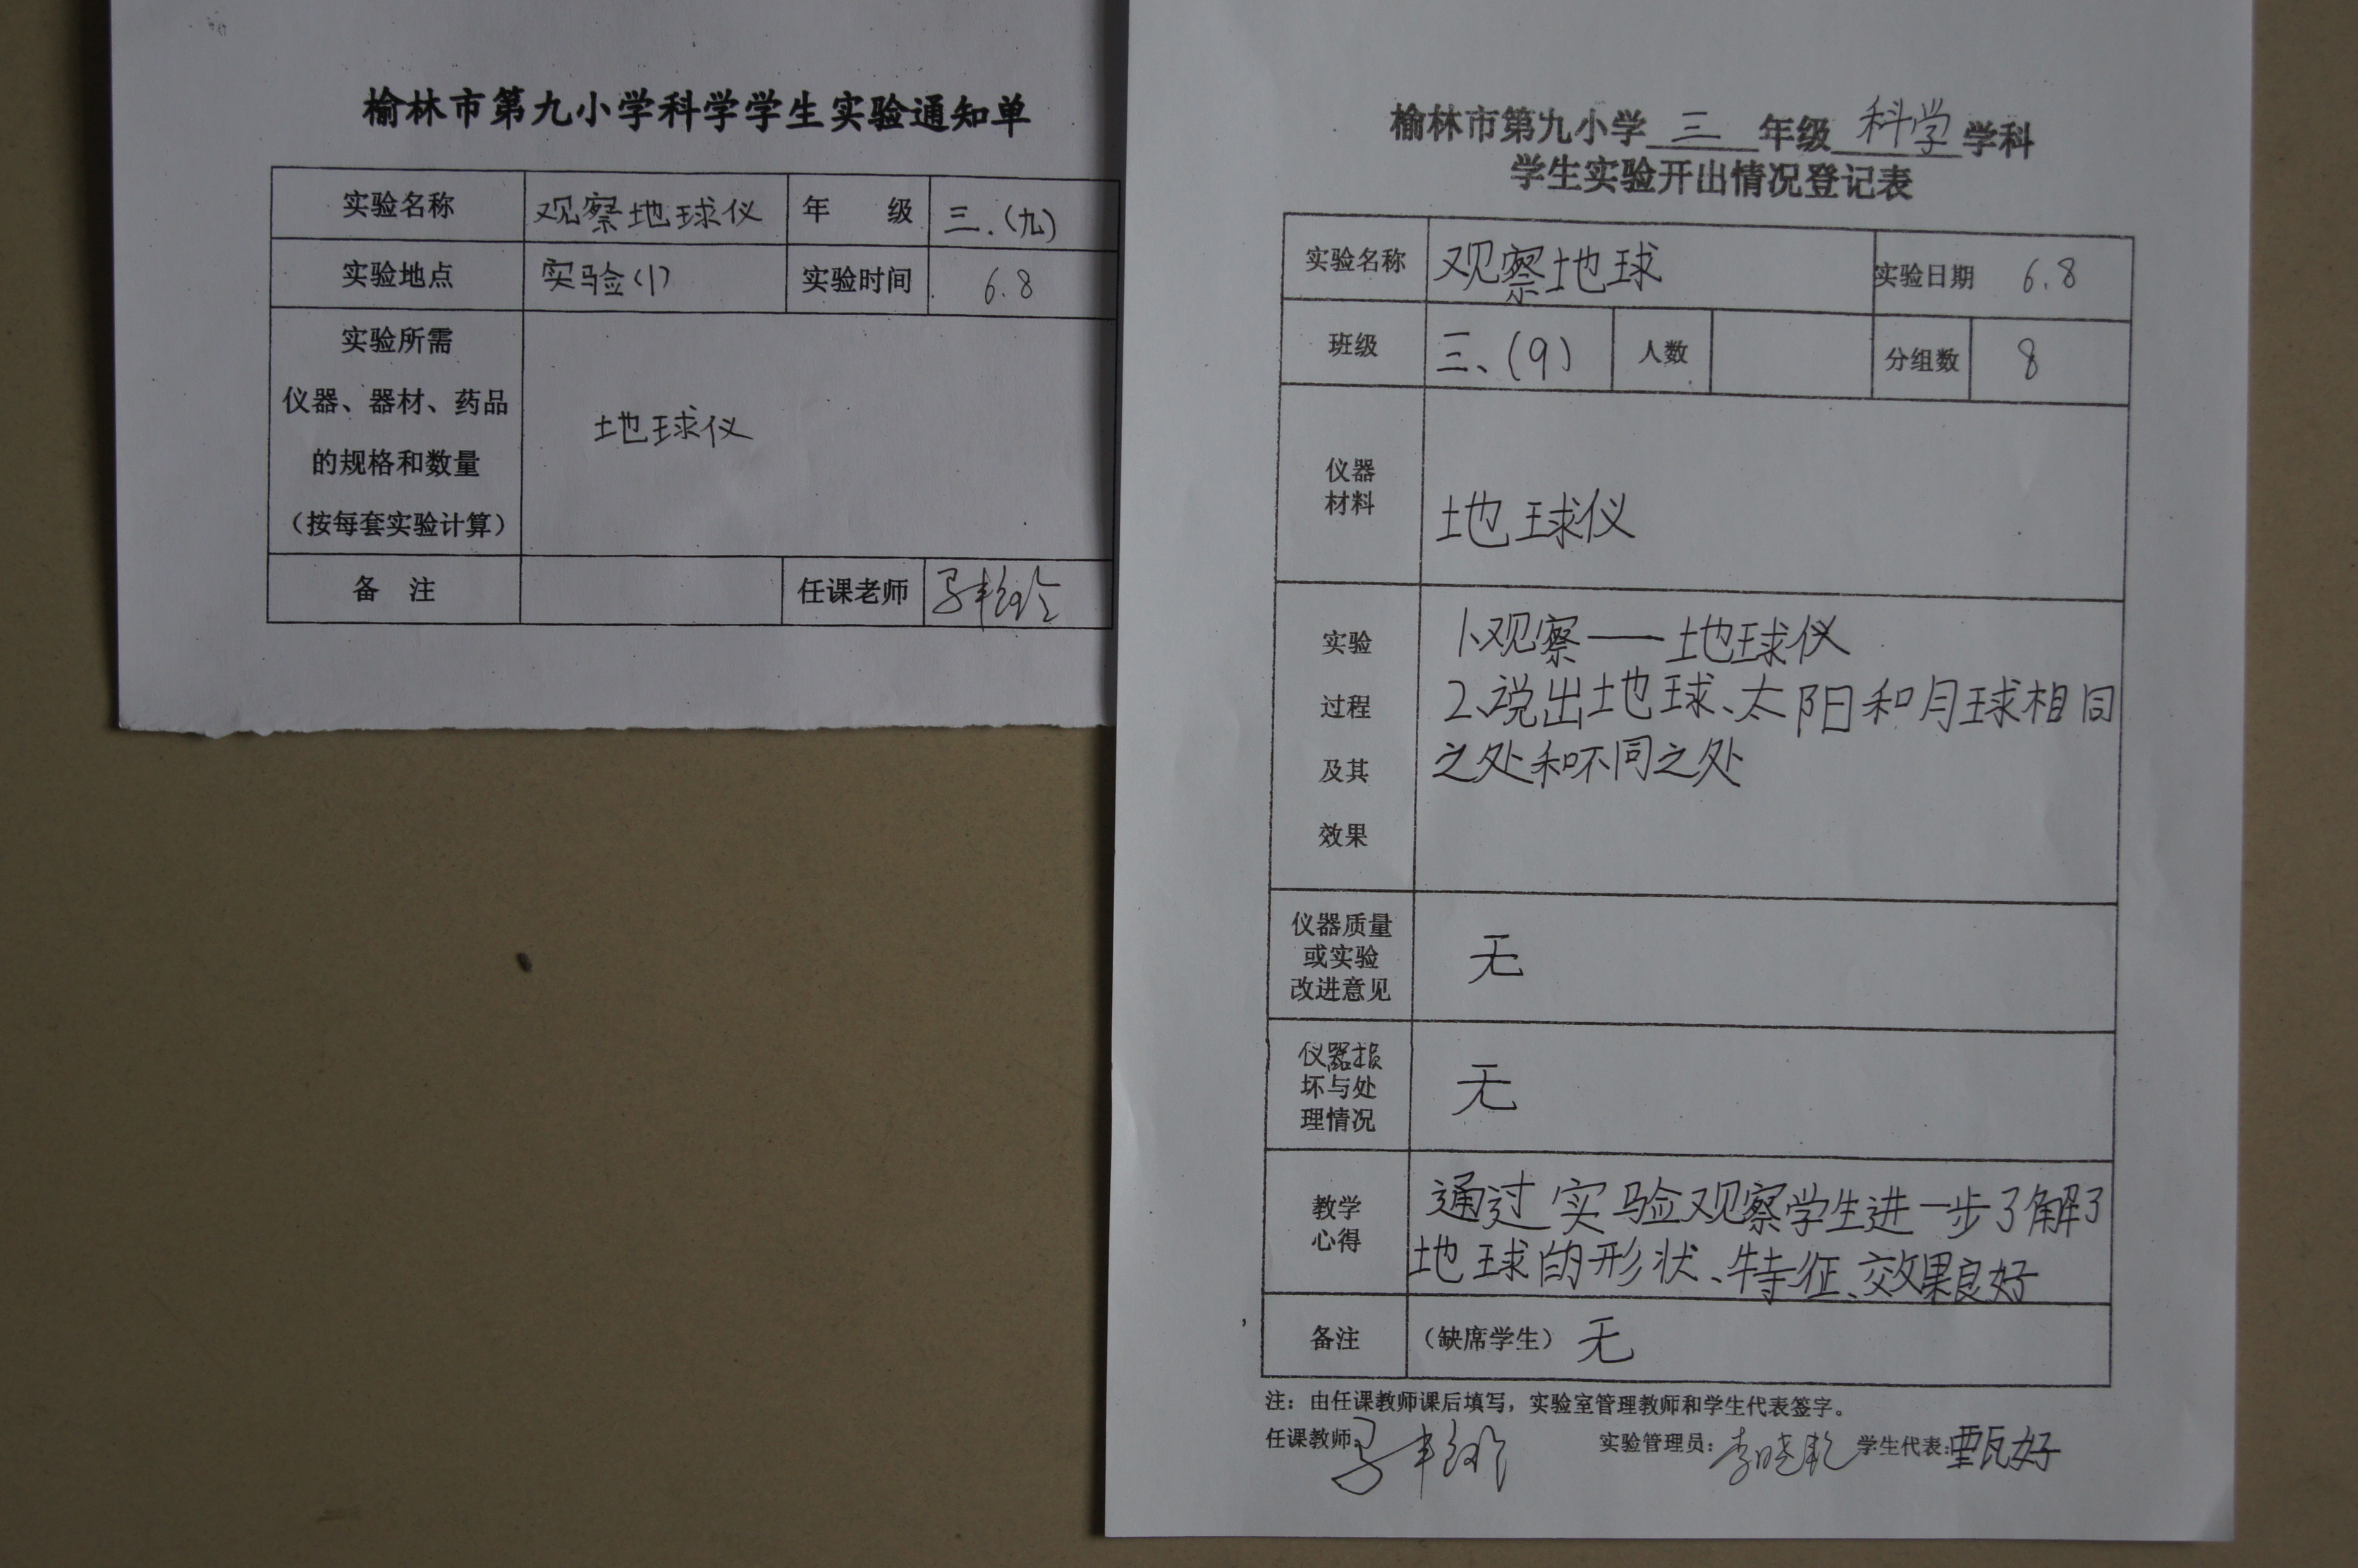 榆林市第九小学科学学生实验通知单
实验名称 观察地球仪 年 级 三.(九)
实验地点 实验(1) 实验时间 6.8
实验所需
仪器、器材、药品
的规格和数量
(按每套实验计算)
地球仪
备 注 任课老师
榆林市第九小学 三 年级 科学 学科
学生实验开出情况登记表
实验名称 观察地球 实验日期 6.8
班级 三、(9) 人数 分组数 8
仪器
材料
地球仪
实验
过程
及其
效果
1、观察——地球仪
2、说出地球、太阳和月球相同
之处和不同之处
仪器质量
或实验
改进意见
无
仪器损
坏与处
理情况
无
教学
心得
通过实验观察学生进一步了解了
地球的形状、特征、效果良好
备注 (缺席学生) 无
注：由任课教师课后填写，实验室管理教师和学生代表签字。
任课教师: 实验管理员: 李晓乾 学生代表: 甄好